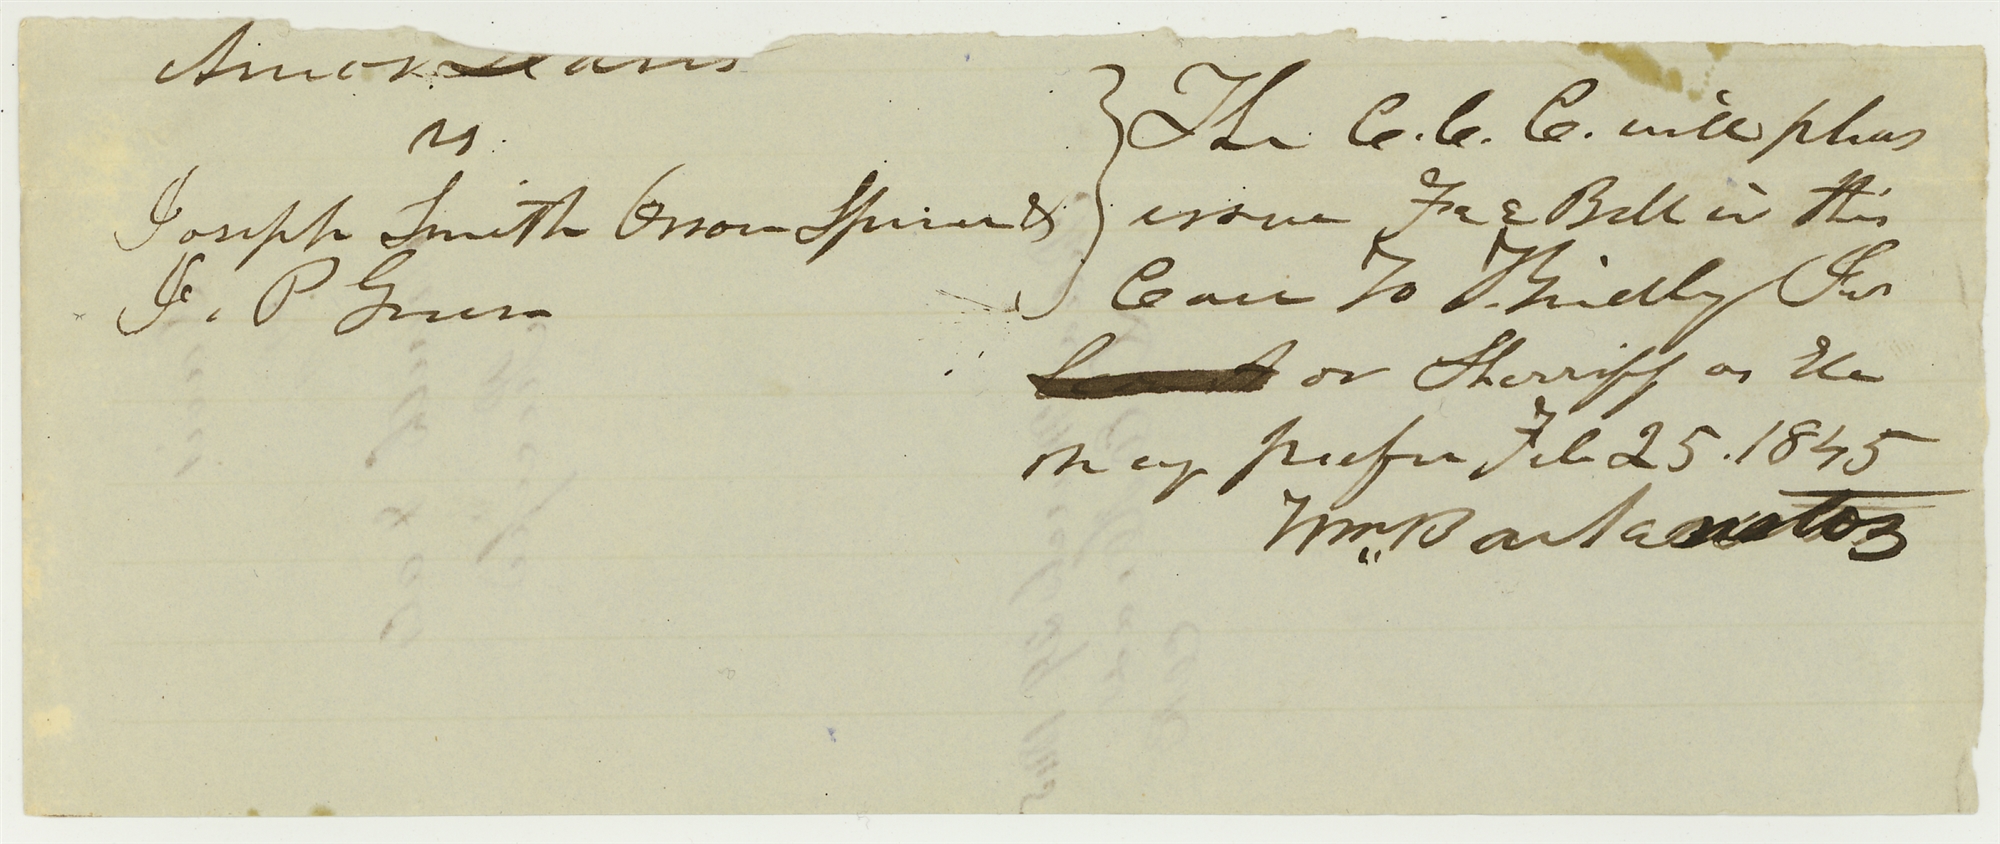 Amos Davis
vs.
Joseph Smith Orson Spencer &
J. P Green
The C. C. C. will pleas
issue Fee Bill in this
Case To
or Sherriff as He
may prefer Feb 25. 1845
Wm.